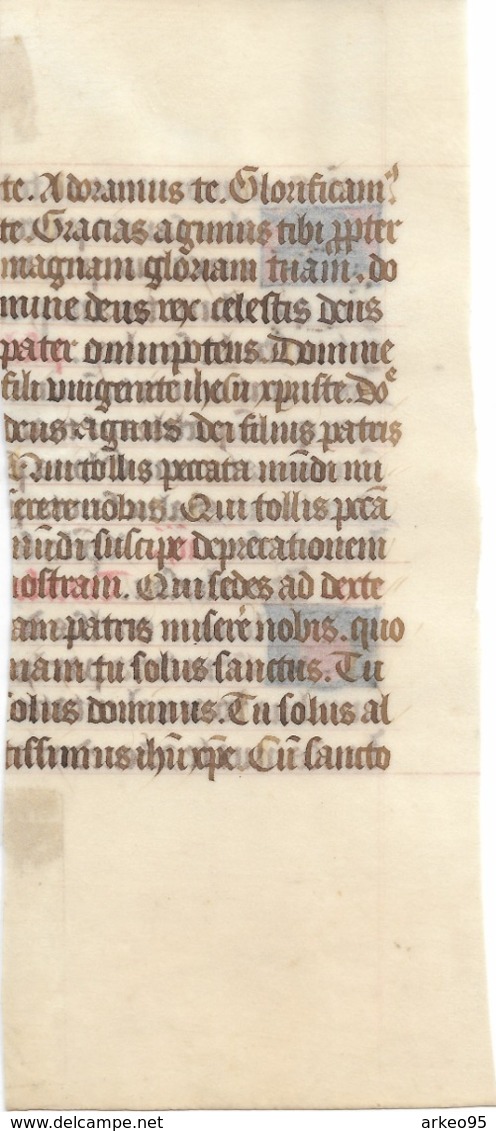 te. Adoramus te. Glorificam⁹
te. Gracias agimus tibi ꝓpter
magnam gloriam tuam. do
mine deus rex celestis deus
pater omnipotens. Domine
fili vnigenite ihesu xpiste. Doᵉ
deus agnus dei filius patris
Qui tollis peccata mūdi mi
serere nobis. Qui tollis pccā
mūdi suscipe deprecationem
nostram. Qui sedes ad dexte
ram patris misere nobis. quo
niam tu solus sanctus. Tu
solus dominus. Tu solus al
tissimus ihū xp̄e. Cū sancto
www.delcampe.net
arkeo95